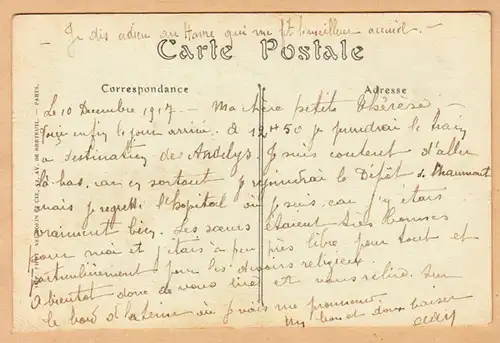 — Je dis adieu au Havre qui me fit l'meilleur accueil. —
Carte Postale
Correspondance
Adresse
Le 10 Decembre 1917. — Ma chère petite Thérèse, —
Voici enfin le jour arrivé. à 12h50 je prendrai le train
à destination des Andelys. Je suis content d'aller
là-bas, car en sortant je rejoindrai le Dépôt de Chaumont
mais je regrette l'hôpital où je suis car j'y étais
vraiment bien. Les sœurs étaient très bonnes
pour moi et j'étais à peu près libre pour tout et
particulièrement pour les devoirs religieux.
A bientôt donc de vous lire et vous relire. Sur
le bord d' où je vais me promener.
Un bon et doux baiser